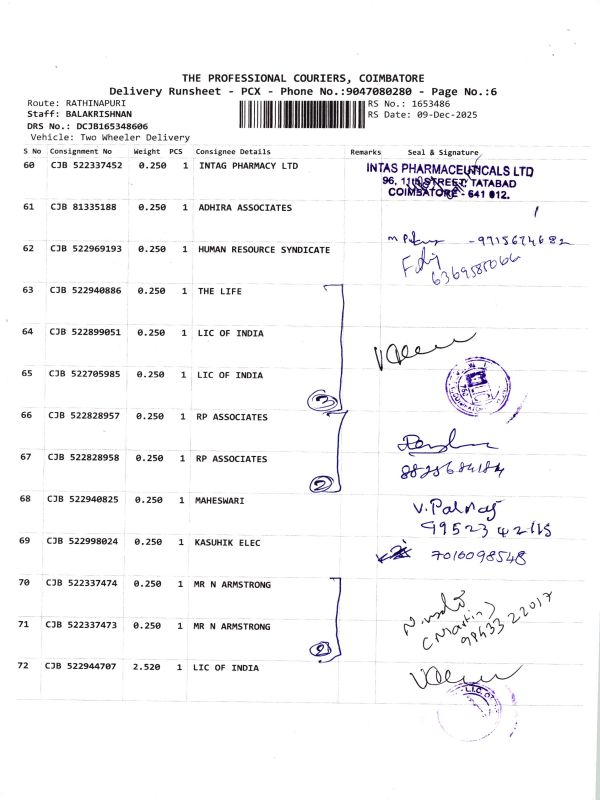 THE PROFESSIONAL COURIERS, COIMBATORE
Delivery Runsheet - PCX - Phone No.:9047080280 - Page No.:6
Route: RATHINAPURI
RS No.: 1653486
Staff: BALAKRISHNAN
RS Date: 09-Dec-2025
DRS No.: DCJB165348606
Vehicle: Two Wheeler Delivery
S No Consignment No Weight PCS Consignee Details Remarks Seal & Signature
60 CJB 522337452 0.250 1 INTAG PHARMACY LTD
INTAS PHARMACEUTICALS LTD
96, 11th STREET, TATABAD
COIMBATORE - 641 012.
61 CJB 81335188 0.250 1 ADHIRA ASSOCIATES
62 CJB 522969193 0.250 1 HUMAN RESOURCE SYNDICATE
- 9715674682
6369585066
63 CJB 522940886 0.250 1 THE LIFE
64 CJB 522899051 0.250 1 LIC OF INDIA
65 CJB 522705985 0.250 1 LIC OF INDIA
3
66 CJB 522828957 0.250 1 RP ASSOCIATES
67 CJB 522828958 0.250 1 RP ASSOCIATES
2
68 CJB 522940825 0.250 1 MAHESWARI
V. Palraj
69 CJB 522998024 0.250 1 KASUHIK ELEC
7010098548
70 CJB 522337474 0.250 1 MR N ARMSTRONG
71 CJB 522337473 0.250 1 MR N ARMSTRONG
2
(Martin)
98433 22017
72 CJB 522944707 2.520 1 LIC OF INDIA